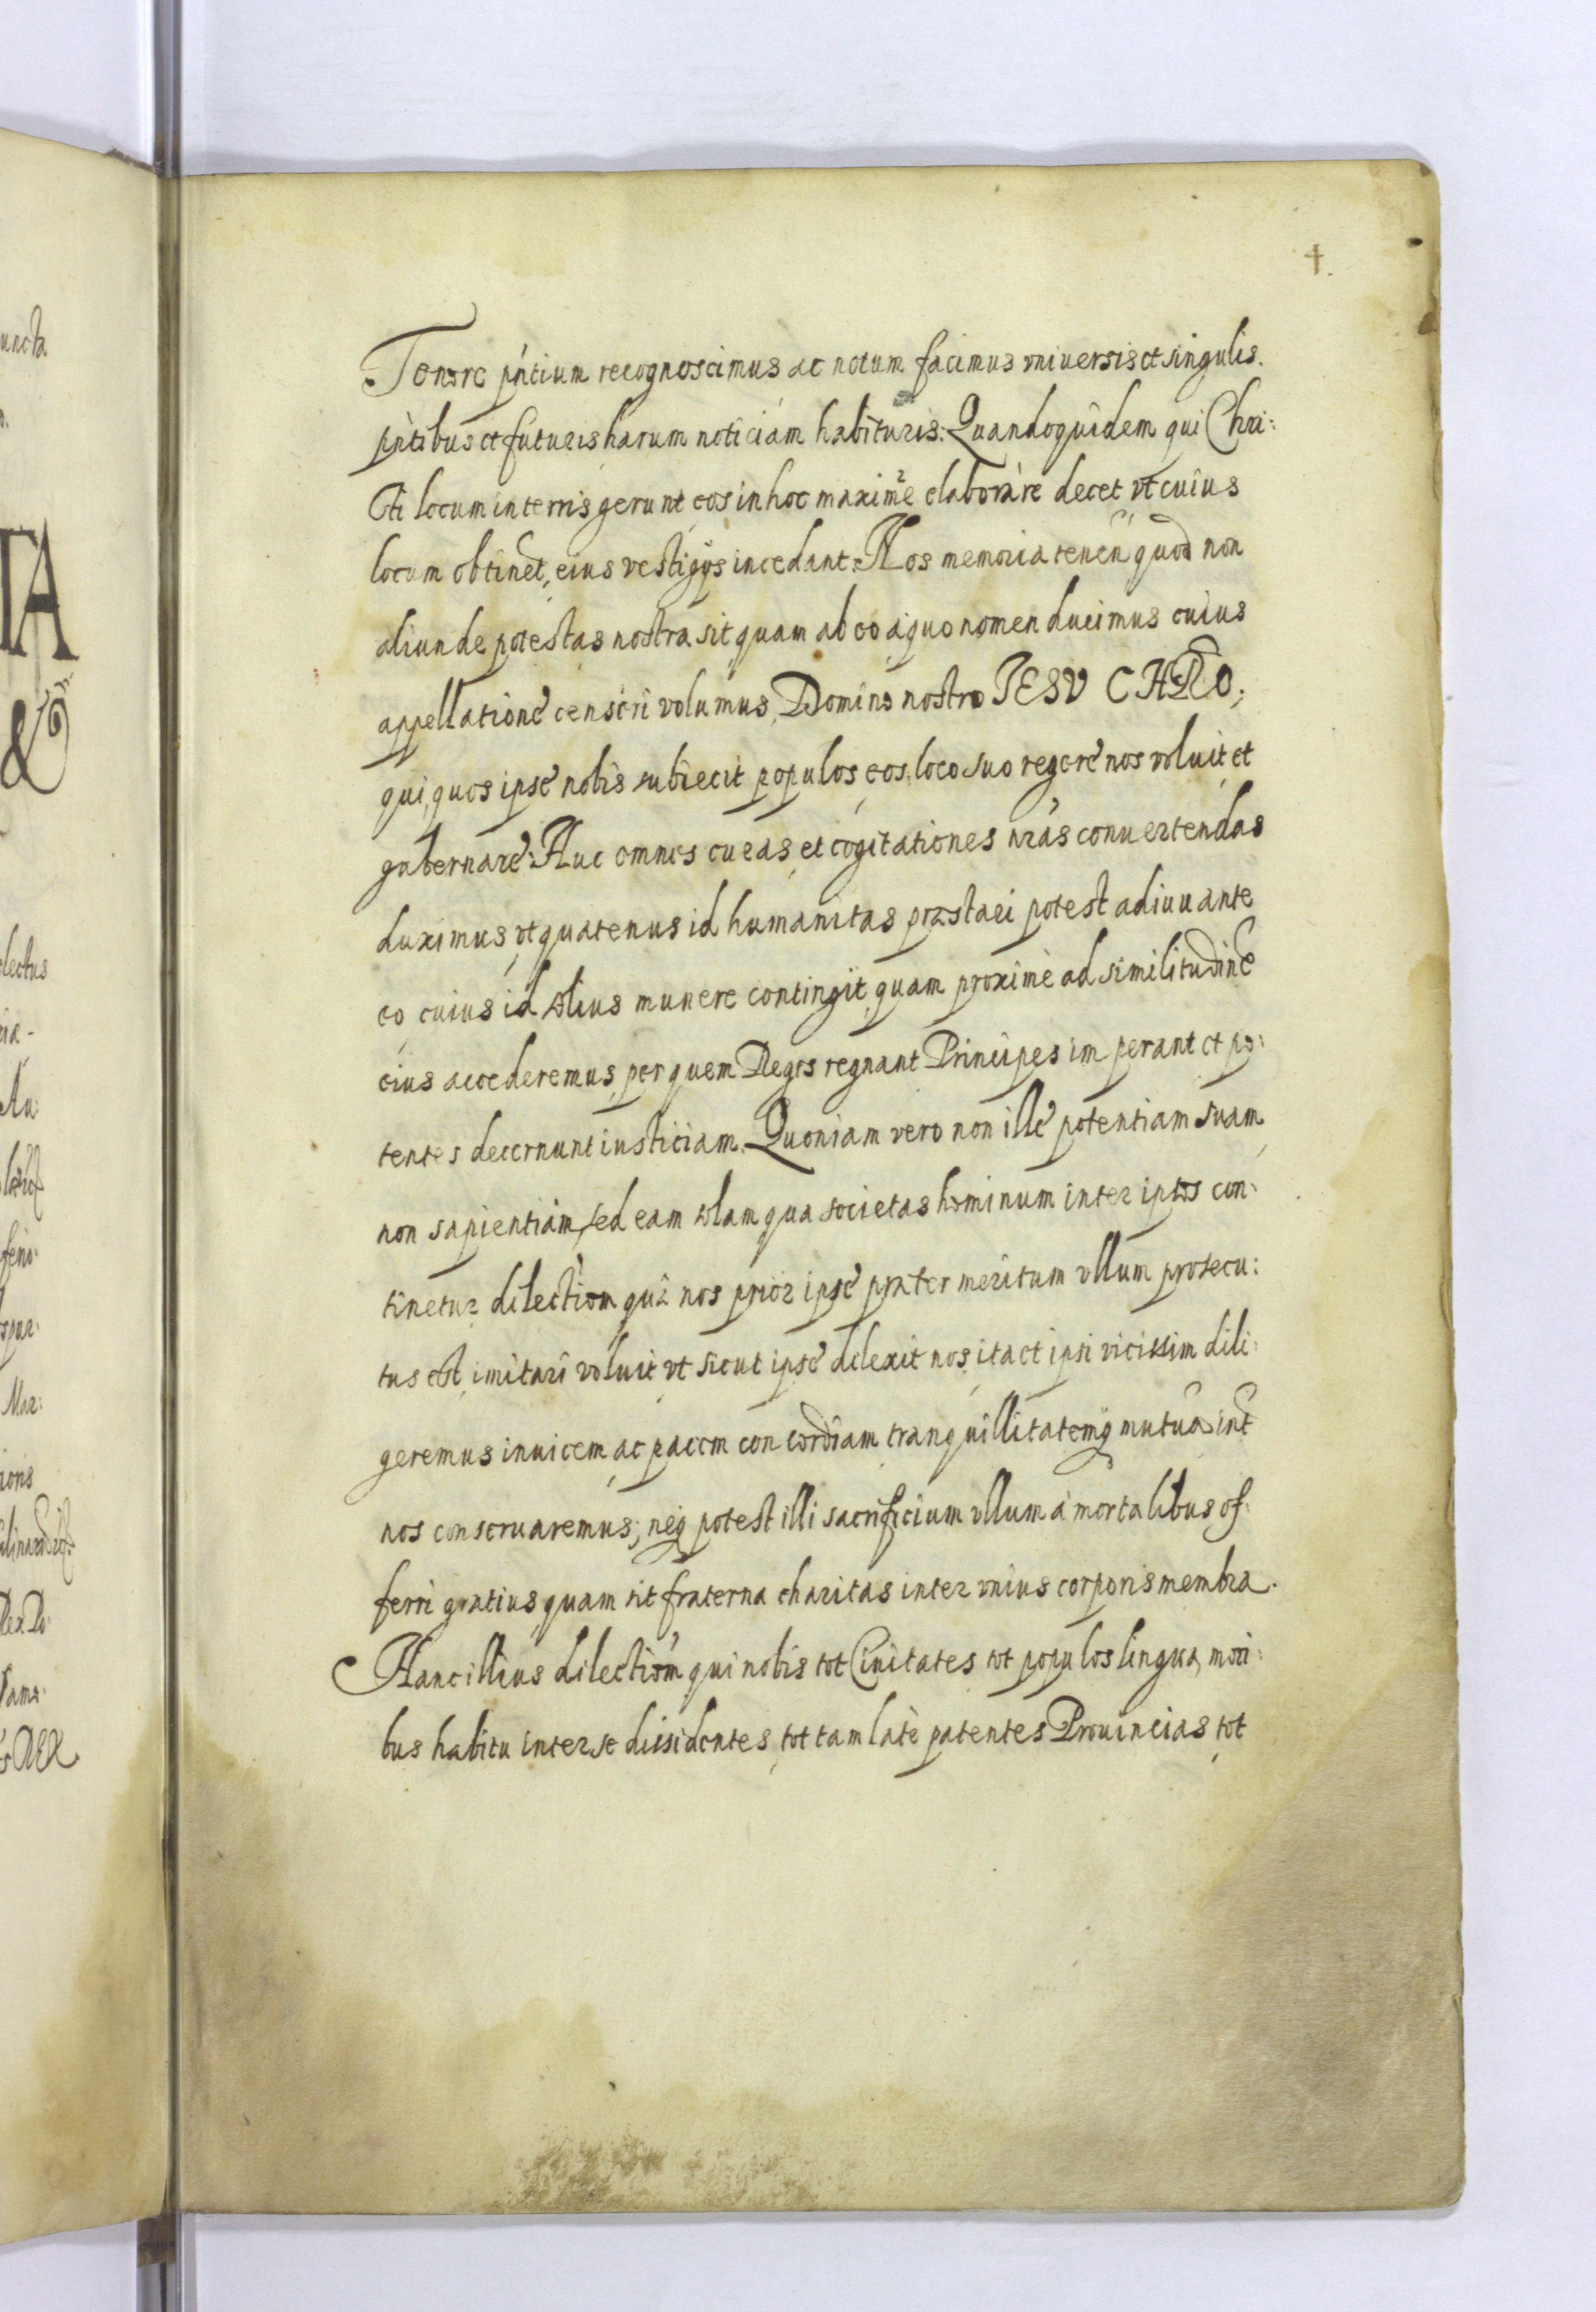 4.
Tenore pńtium recognoscimus ac notum facimus vniuersis et singulis.
pńtibus et futuris harum noticiam habituris: Quandoquidem qui Chri:
sti locum in terris gerunt eos in hoc maxime elaborare decet, vt cuius
locum obtinet, eius vestigijs incedant: Nos memoria tenen quod non
aliunde potestas nostra sit quam ab eo à quo nomen ducimus cuius
appellatione censeri volumus, Domino nostro IESV CHRO;
qui, quos ipse nobis subiecit populos, eos, loco suo regere nos voluit, et
gubernare: Huc omnes curas, et cogitationes nras conuertendas
duximus, vt quatenus id humanitas præstari potest adiuuante
eo, cuius id solius munere contingit, quam proximè ad similitudine
eius accederemus, per quem Reges regnant Principes imperant et po:
tentes decernunt iusticiam. Quoniam vero non ille potentiam suam,
non sapientiam, sed eam solam qua societas hominum inter ipsos con:
tinetur dilectiom, qua nos prior ipse præter meritum vllum prosecu:
tus est, imitari voluit vt sicut ipse dilexit nos, ita et ipsi vicissim dili:
geremus inuicem, ac pacem concordiam tranquillitatemq mutua int
nos conseruaremus; neq potest illi sacrificium vllum à mortalibus of:
ferri gratius quam sit fraterna charitas inter vnius corporis membra.
Hanc illius dilectiom qui nobis tot Ciuitates, tot populos lingua, mori:
bus habitu inter se dissidentes, tot tam latè patentes Prouincias, tot
uncta
TA
&
lectus
Mar:
ions